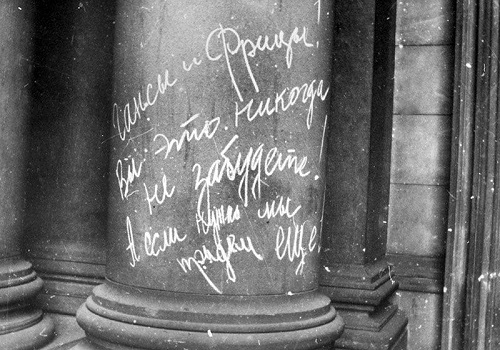 Гансы и Фрицы!
Вы это никогда
не забудете!
А если нужно мы
придем еще!